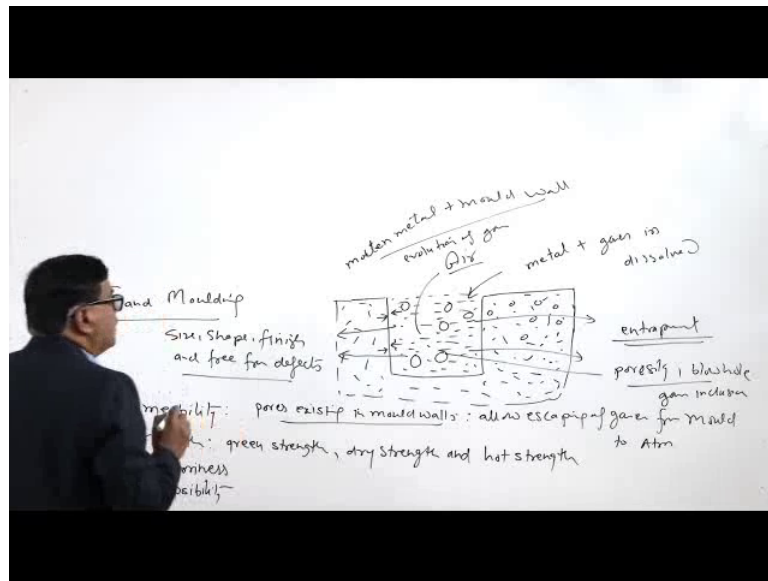 molten metal + mould wall
evolution of gas
Air
metal + gases in
dissolved
and Moulding
Size, Shape, finish
and free from defects
entrapment
porosity, blowhole
gas inclusion
meability: pores existing in mould walls: allow escaping of gases from mould
to Atm
: green strength, dry strength and hot strength